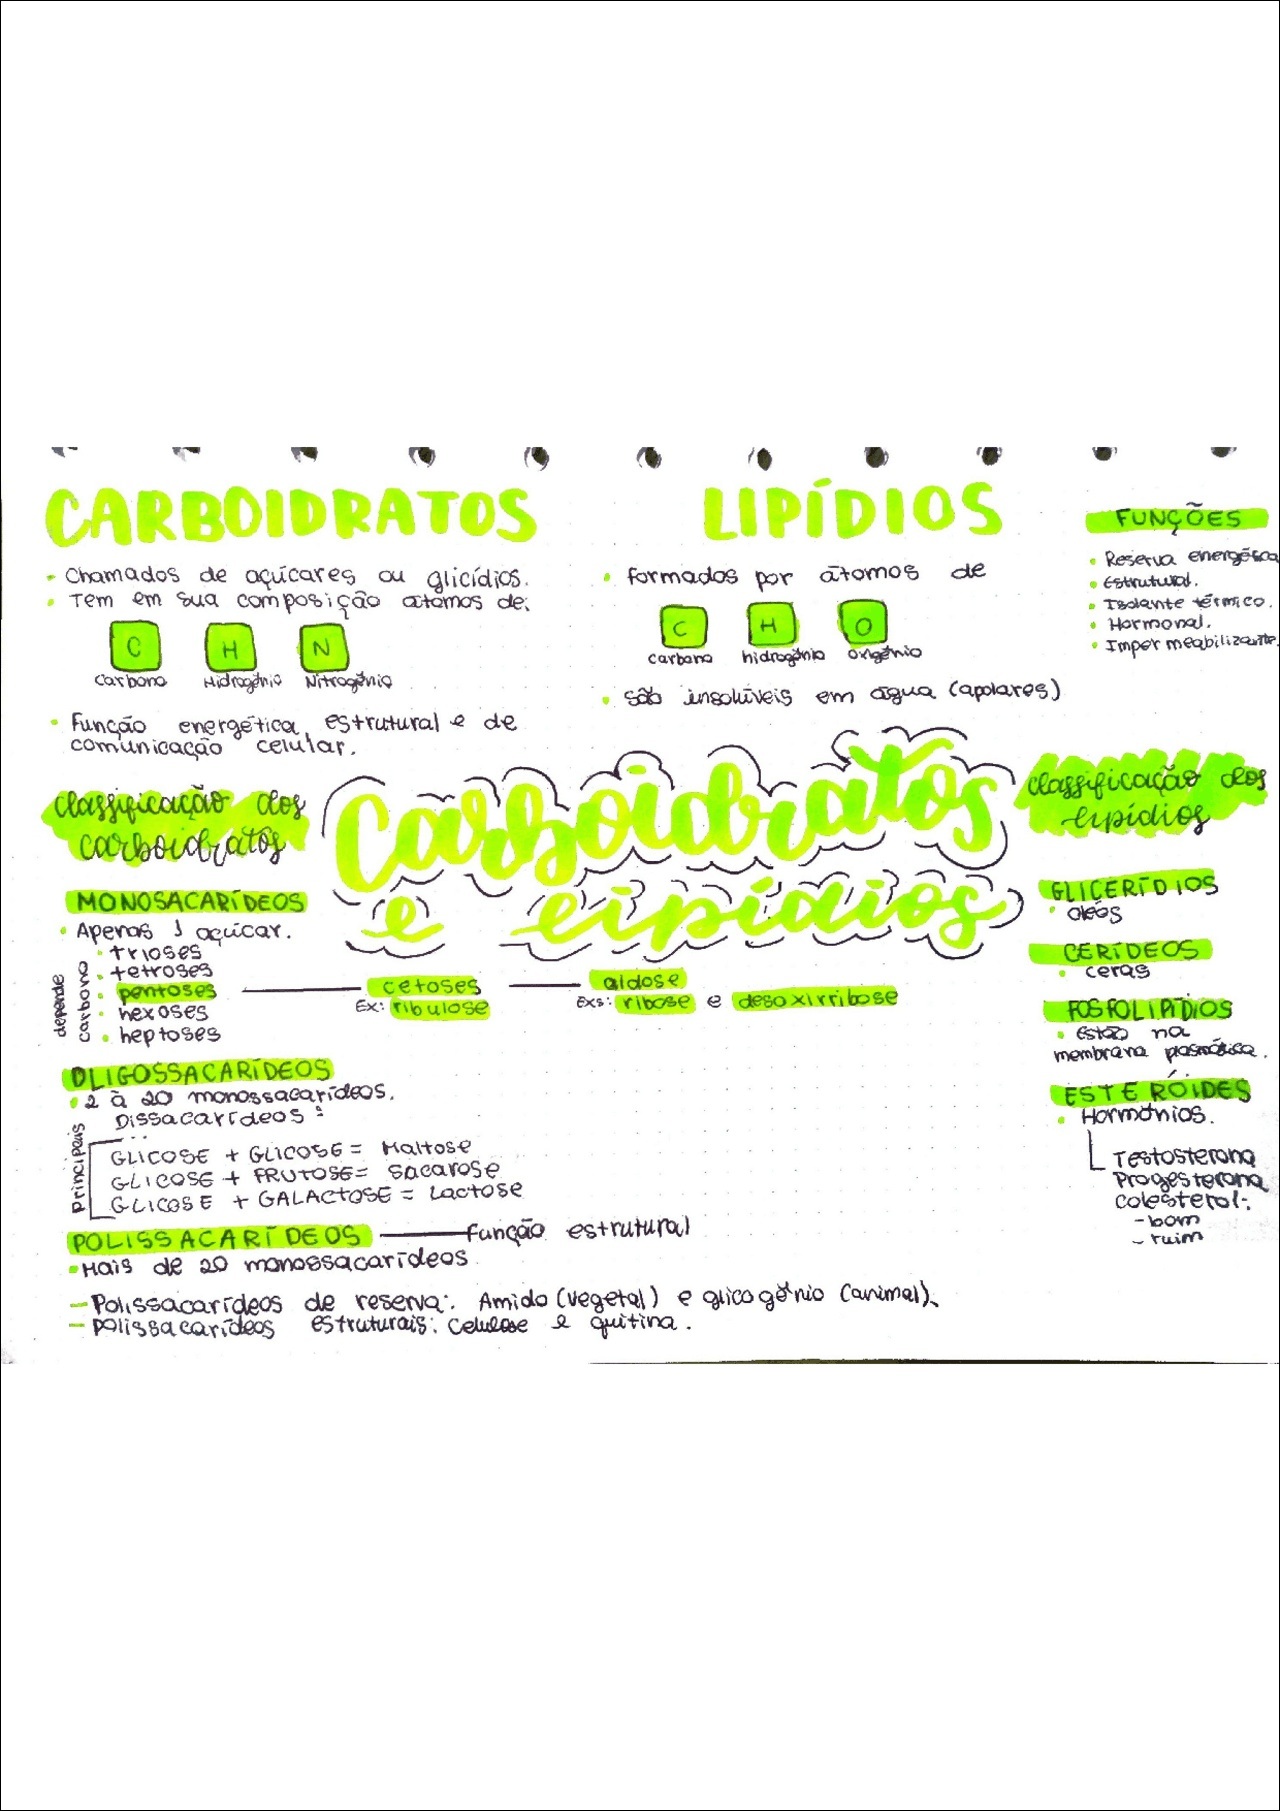 CARBOIDRATOS
- Chamados de açúcares ou glicídios.
• Tem em sua composição átomos de:
C H N
Carbono Hidrogênio Nitrogênio
• Função energética, estrutural e de
comunicação celular.
LIPÍDIOS
• formados por átomos de
C H O
carbono hidrogênio oxigênio
• são insolúveis em água (apolares)
FUNÇÕES
• Reserva energética
• Estrutural.
• Isolante térmico.
• Hormonal.
• Impermeabilizante.
Carboidratos
e lipídios
classificação dos
carboidratos
MONOSACARÍDEOS
• Apenas 1 açúcar.
depende
carbono
• trioses
• tetroses
• pentoses
• hexoses
• heptoses
cetoses
Ex: ribulose
aldose
Exs: ribose e desoxirribose
OLIGOSSACARÍDEOS
• 2 à 20 monossacarídeos.
Dissacarídeos:
principais
GLICOSE + GLICOSE = Maltose
GLICOSE + FRUTOSE = Sacarose
GLICOSE + GALACTOSE = Lactose
POLISSACARÍDEOS — Função estrutural
• Mais de 20 monossacarídeos
- Polissacarídeos de reserva: Amido (vegetal) e glicogênio (animal).
- polissacarídeos estruturais: Celulose e quitina.
classificação dos
lipídios
GLICERÍDIOS
• oleos
CERÍDEOS
• ceras
FOSFOLIPÍDIOS
• Estão na
membrana plasmática.
ESTERÓIDES
• Hormônios.
Testosterona
Progesterona
Colesterol:
- bom
- ruim